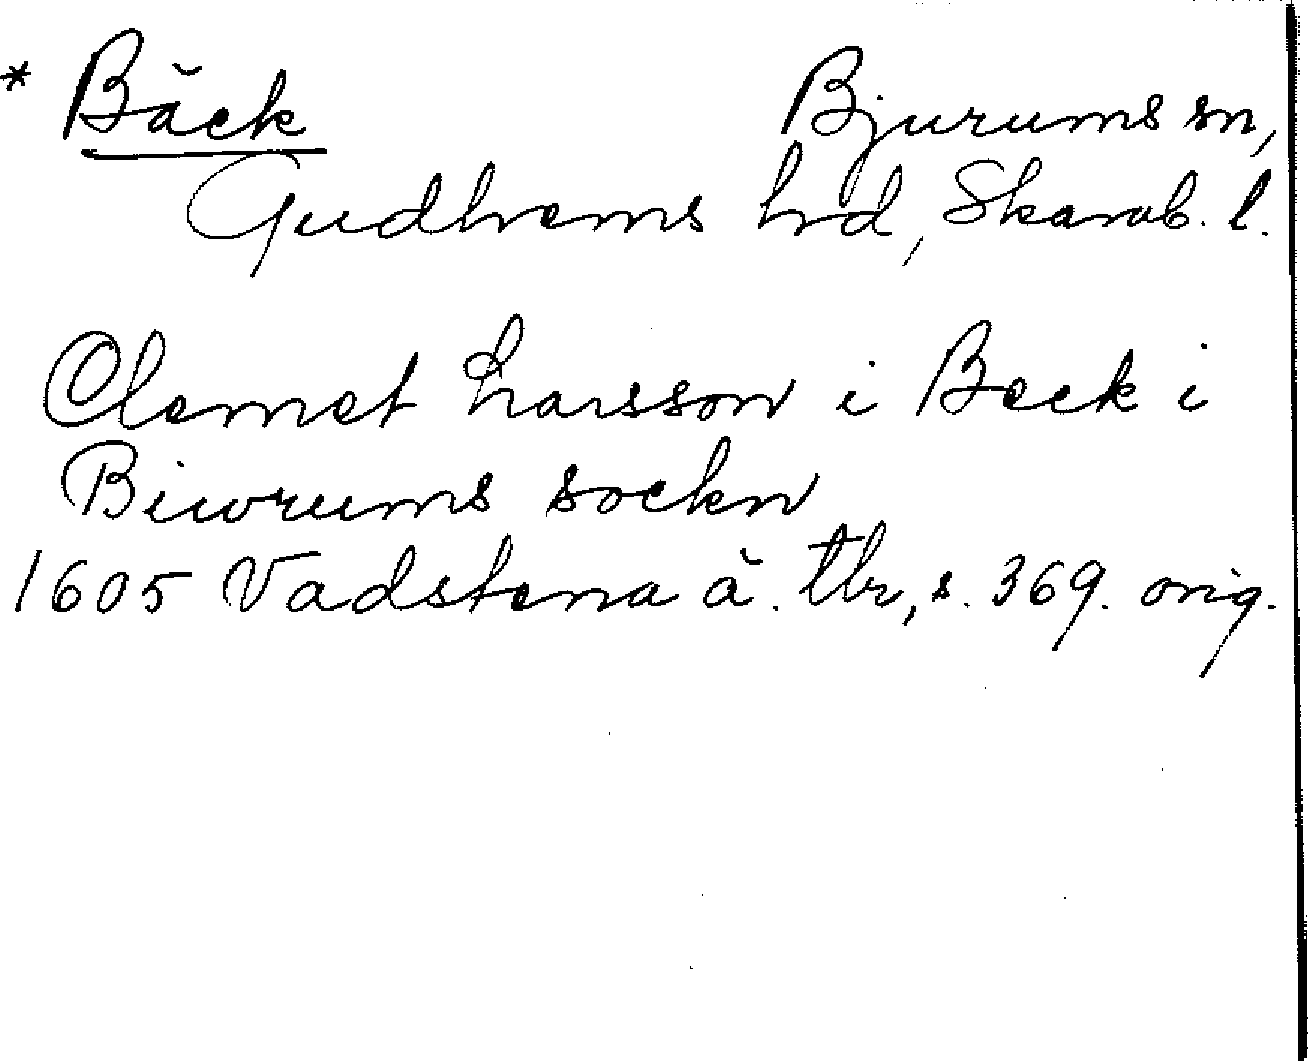 * Bäck Bjurums sn,
Gudhems hrd, Skarab. l.
Clemet Larsson i Beck i
Biwrums sockn
1605 Vadstena ä. tbr, s. 369. orig.